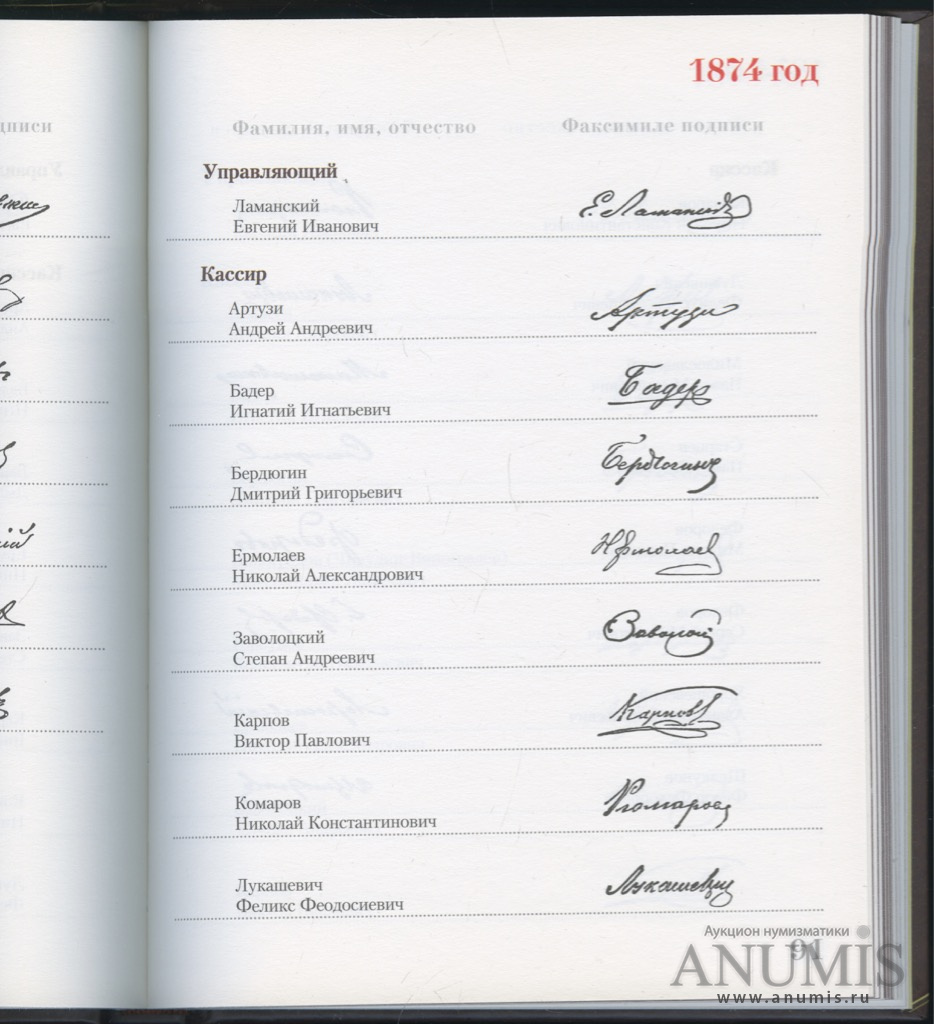 1874 год
Фамилия, имя, отчество Факсимиле подписи
Управляющий
Ламанский
Евгений Иванович
Е. Ламанскій
Кассир
Артузи
Андрей Андреевич
Артузи
Бадер
Игнатий Игнатьевич
Бадер
Бердюгин
Дмитрий Григорьевич
Бердюгинъ
Ермолаев
Николай Александрович
Н Ермолаев
Заволоцкий
Степан Андреевич
Карпов
Виктор Павлович
Карповъ
Комаров
Николай Константинович
Комаров
Лукашевич
Феликс Феодосиевич
Лукашевич
91
Аукцион нумизматики
ANUMIS
www.anumis.ru